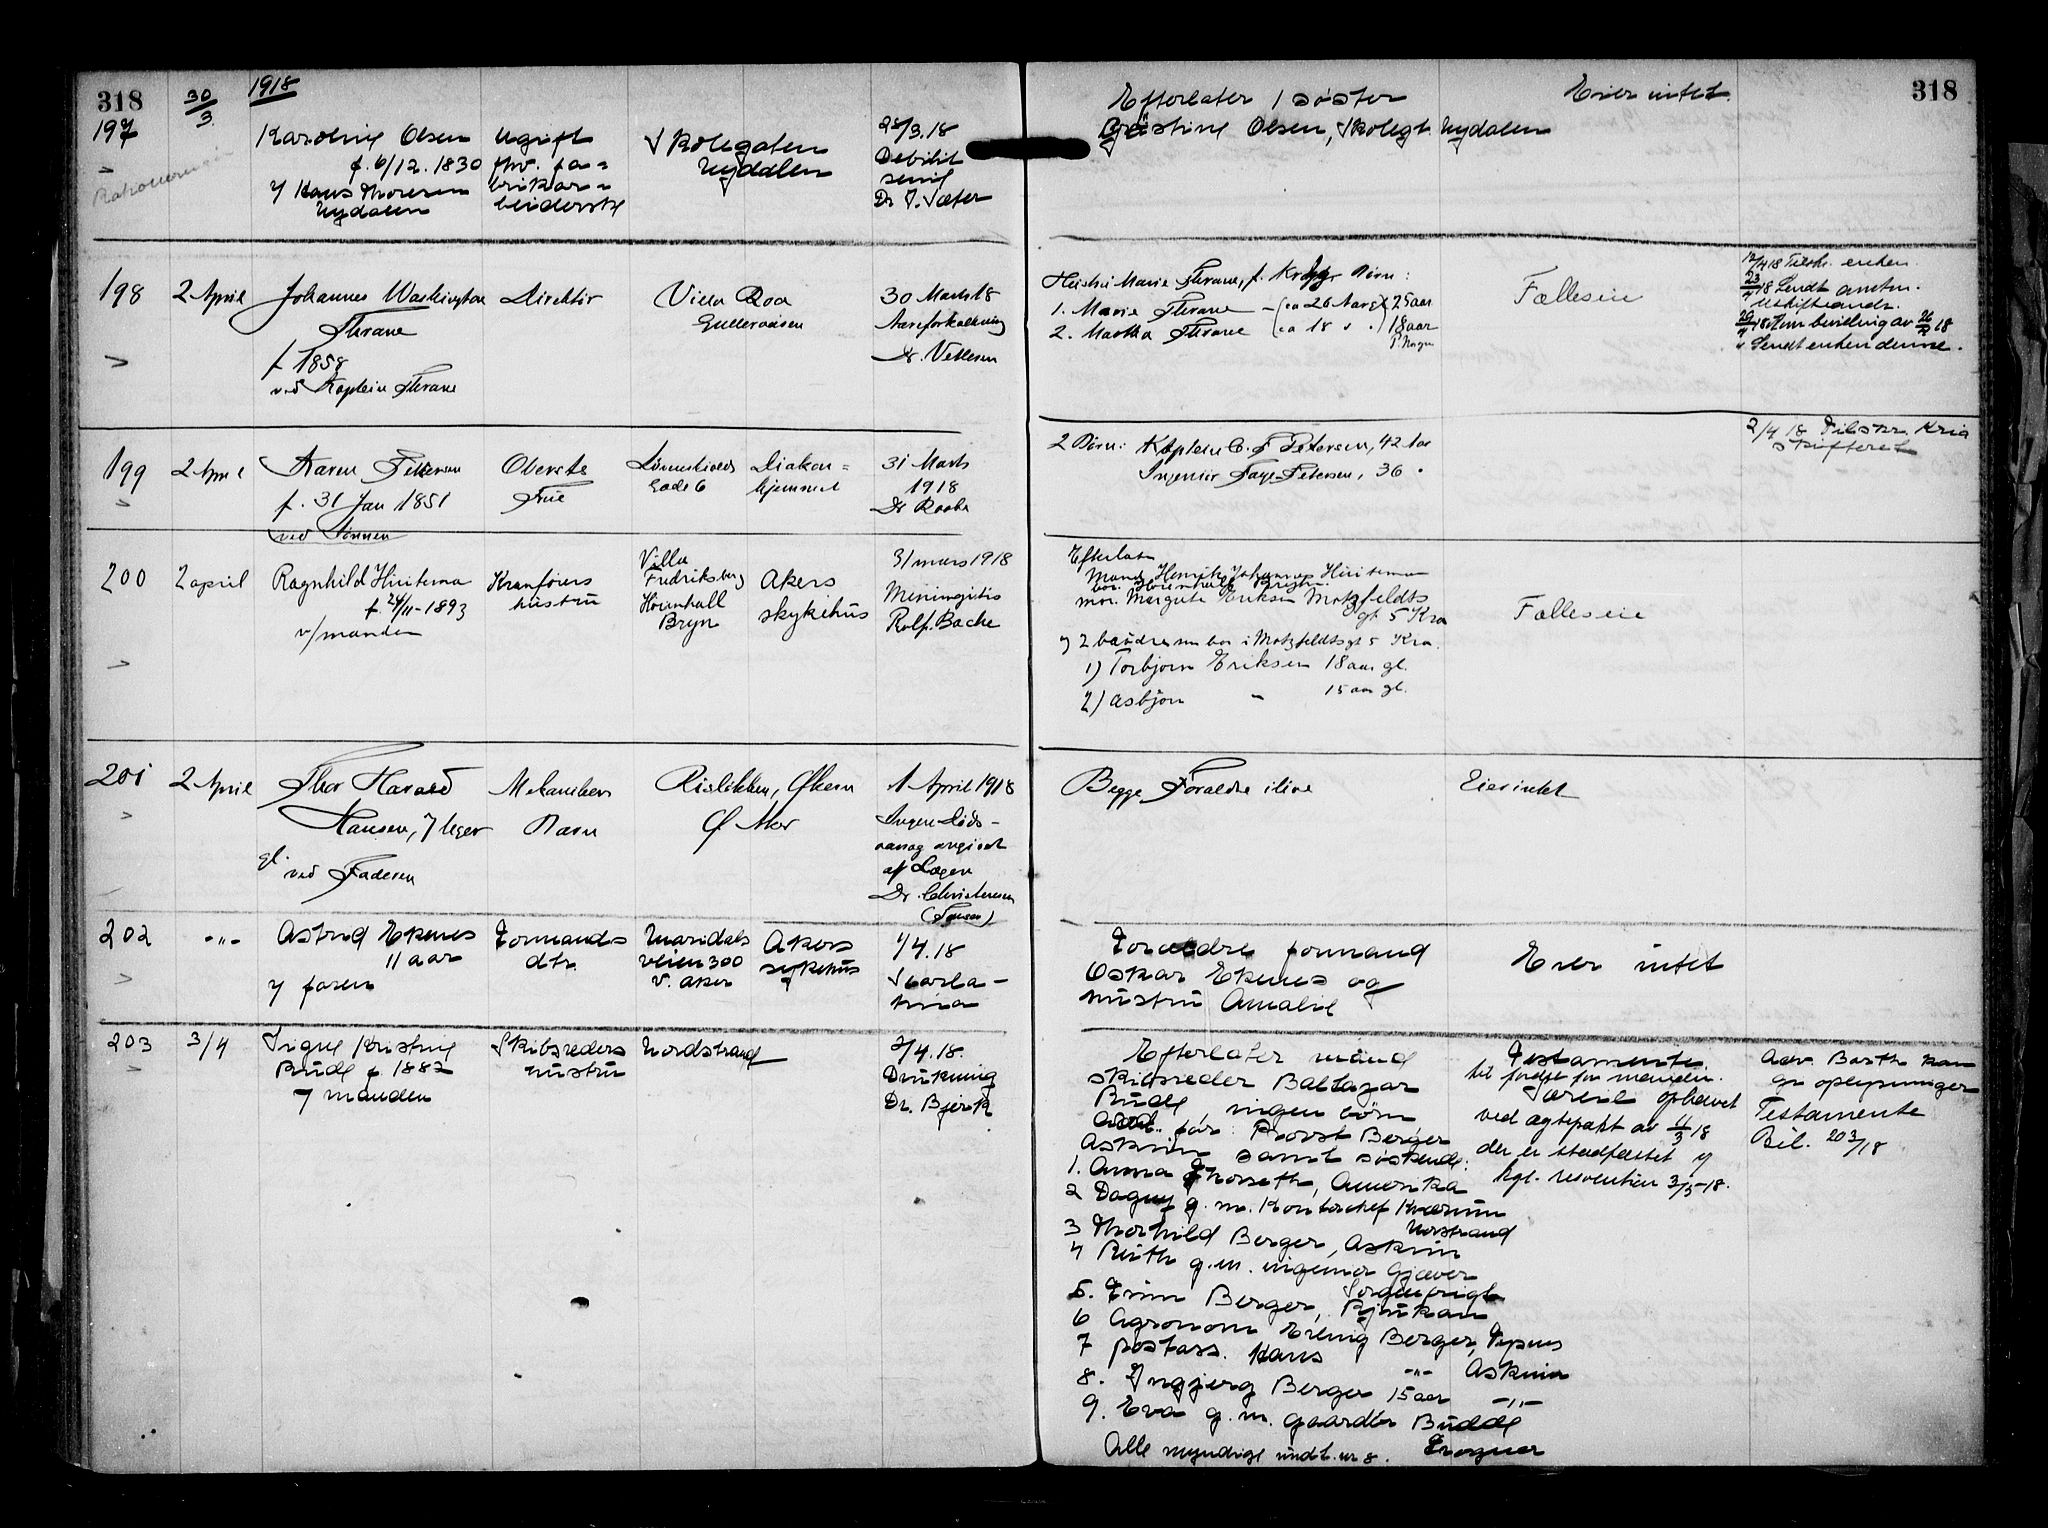 318
1918
318
30/3
197
Karoline Olsen
f. 6/12. 1830
v/ Hans Thoresen
Nydalen
ugift
fhv. fa=
brikar=
beiderske
Skolegaten
Nydalen
28/3.18
Debilit
senil
Dr J. Sæter
Efterlater 1 søster
Olsen, Skolegt Nydalen
Eier intet
198
2 April
Johannes Washington
Thrane
f 1858
ved Kaptein Thrane
Direktør
Villa Roa
Gulleraasen
30 Marts 18
Aareforkalkning
Dr. Vetlesen
Hustru Marie Thrane, f. Børn:
1. Marie Thrane - (ca 26 Aar) 25 aar
2. Martha Thrane (ca 18 " ) 18 aar
Fælleseie
12/4 18 Tilskr. enken.
23/4 18 Sendt amtm.
uskifteandr.
bevilling av
Sendt enken denne.
199
2 April
Karen Petersen
f. 31 Jan 1851
ved Sønnen
Oberste
Frue
Gade 6
Diakon=
hjemmet
31 Marts
1918
Dr Raabe
2 Børn: Kaptein C. F Petersen, 42 Aar
Ingeniør Petersen, 36 "
2/4 18 Tilskr. Kria
skifteret
200
2 april
Ragnhild Hiitema
f. 24/11-1893
v/manden
Kranførers
hustru
Villa
Fredriksberg
Høienhall
Bryn
Akers
sykehus
31 mars 1918
Meningitis
Rolf. Bache
Efterlat
Mand Henrik Johannes Hiitema
bor. Høienhall Bryn.
mor. Margrete Eriksen Motzfeldts
gt 5 Kra
2 brødre som bor i Motzfeldtsgt 5 Kra.
1) Torbjørn Eriksen 18 aar gl.
2) Asbjørn - 15 aar gl.
Fælleseie
201
2 April
Thor Harald
Hansen, 7 Uger
gl.
ved Faderen
Mekanikers
Barn
Risløkken, Økern
Ø Aker
1 April 1918
Ingen Døds-
aarsag angivet
af Lægen
Dr. Christensen
Begge Forældre ilive
Eier intet
202
-"-
Astrid Ekenes
11 aar
v/ faren
Formands
dtr.
Maridals
veien 300
V. Aker
Akers
sykehus
1/4.18
Skarla-
kina
Forældre formand
Oskar Ekenes og
hustru Amalie
Eier intet
203
3/4
Signe Kristine
Budde f 1882
v/ manden
Skibsreders
hustru
Nordstrand
2/4.18.
Drukning
Dr. Bjerk
Efterlater mand
skibsreder Baltazar
Budde, ingen børn
far: Provst Berger
Askim samt søskende:
1. Anna Thorseth, Amerika
2 Dagny g. m. Kontorchef Kværum
Norstrand
3 Thorhild Berger, Askim
4 Ruth g.m. ingeniør Gjæver
Sorgenfrigt
5. Finn Berger, Rjukan
6 Agronom Erling Berger,
7 postass. Hans -"- Askim
8. Ingjerg Berger 15 aar -"-
9. Eva g. m. gaardbr Budde
Frogner
Alle myndige undt. nr 8.
Testamente
til fordel for manden.
Særeie ophævet
ved ægtepakt av 11/3 18
der er stadfæstet v
kgl. resolution 3/5-18.
Adv. Barth kan
gi oplysninger
Testamente
Bil. 203/18